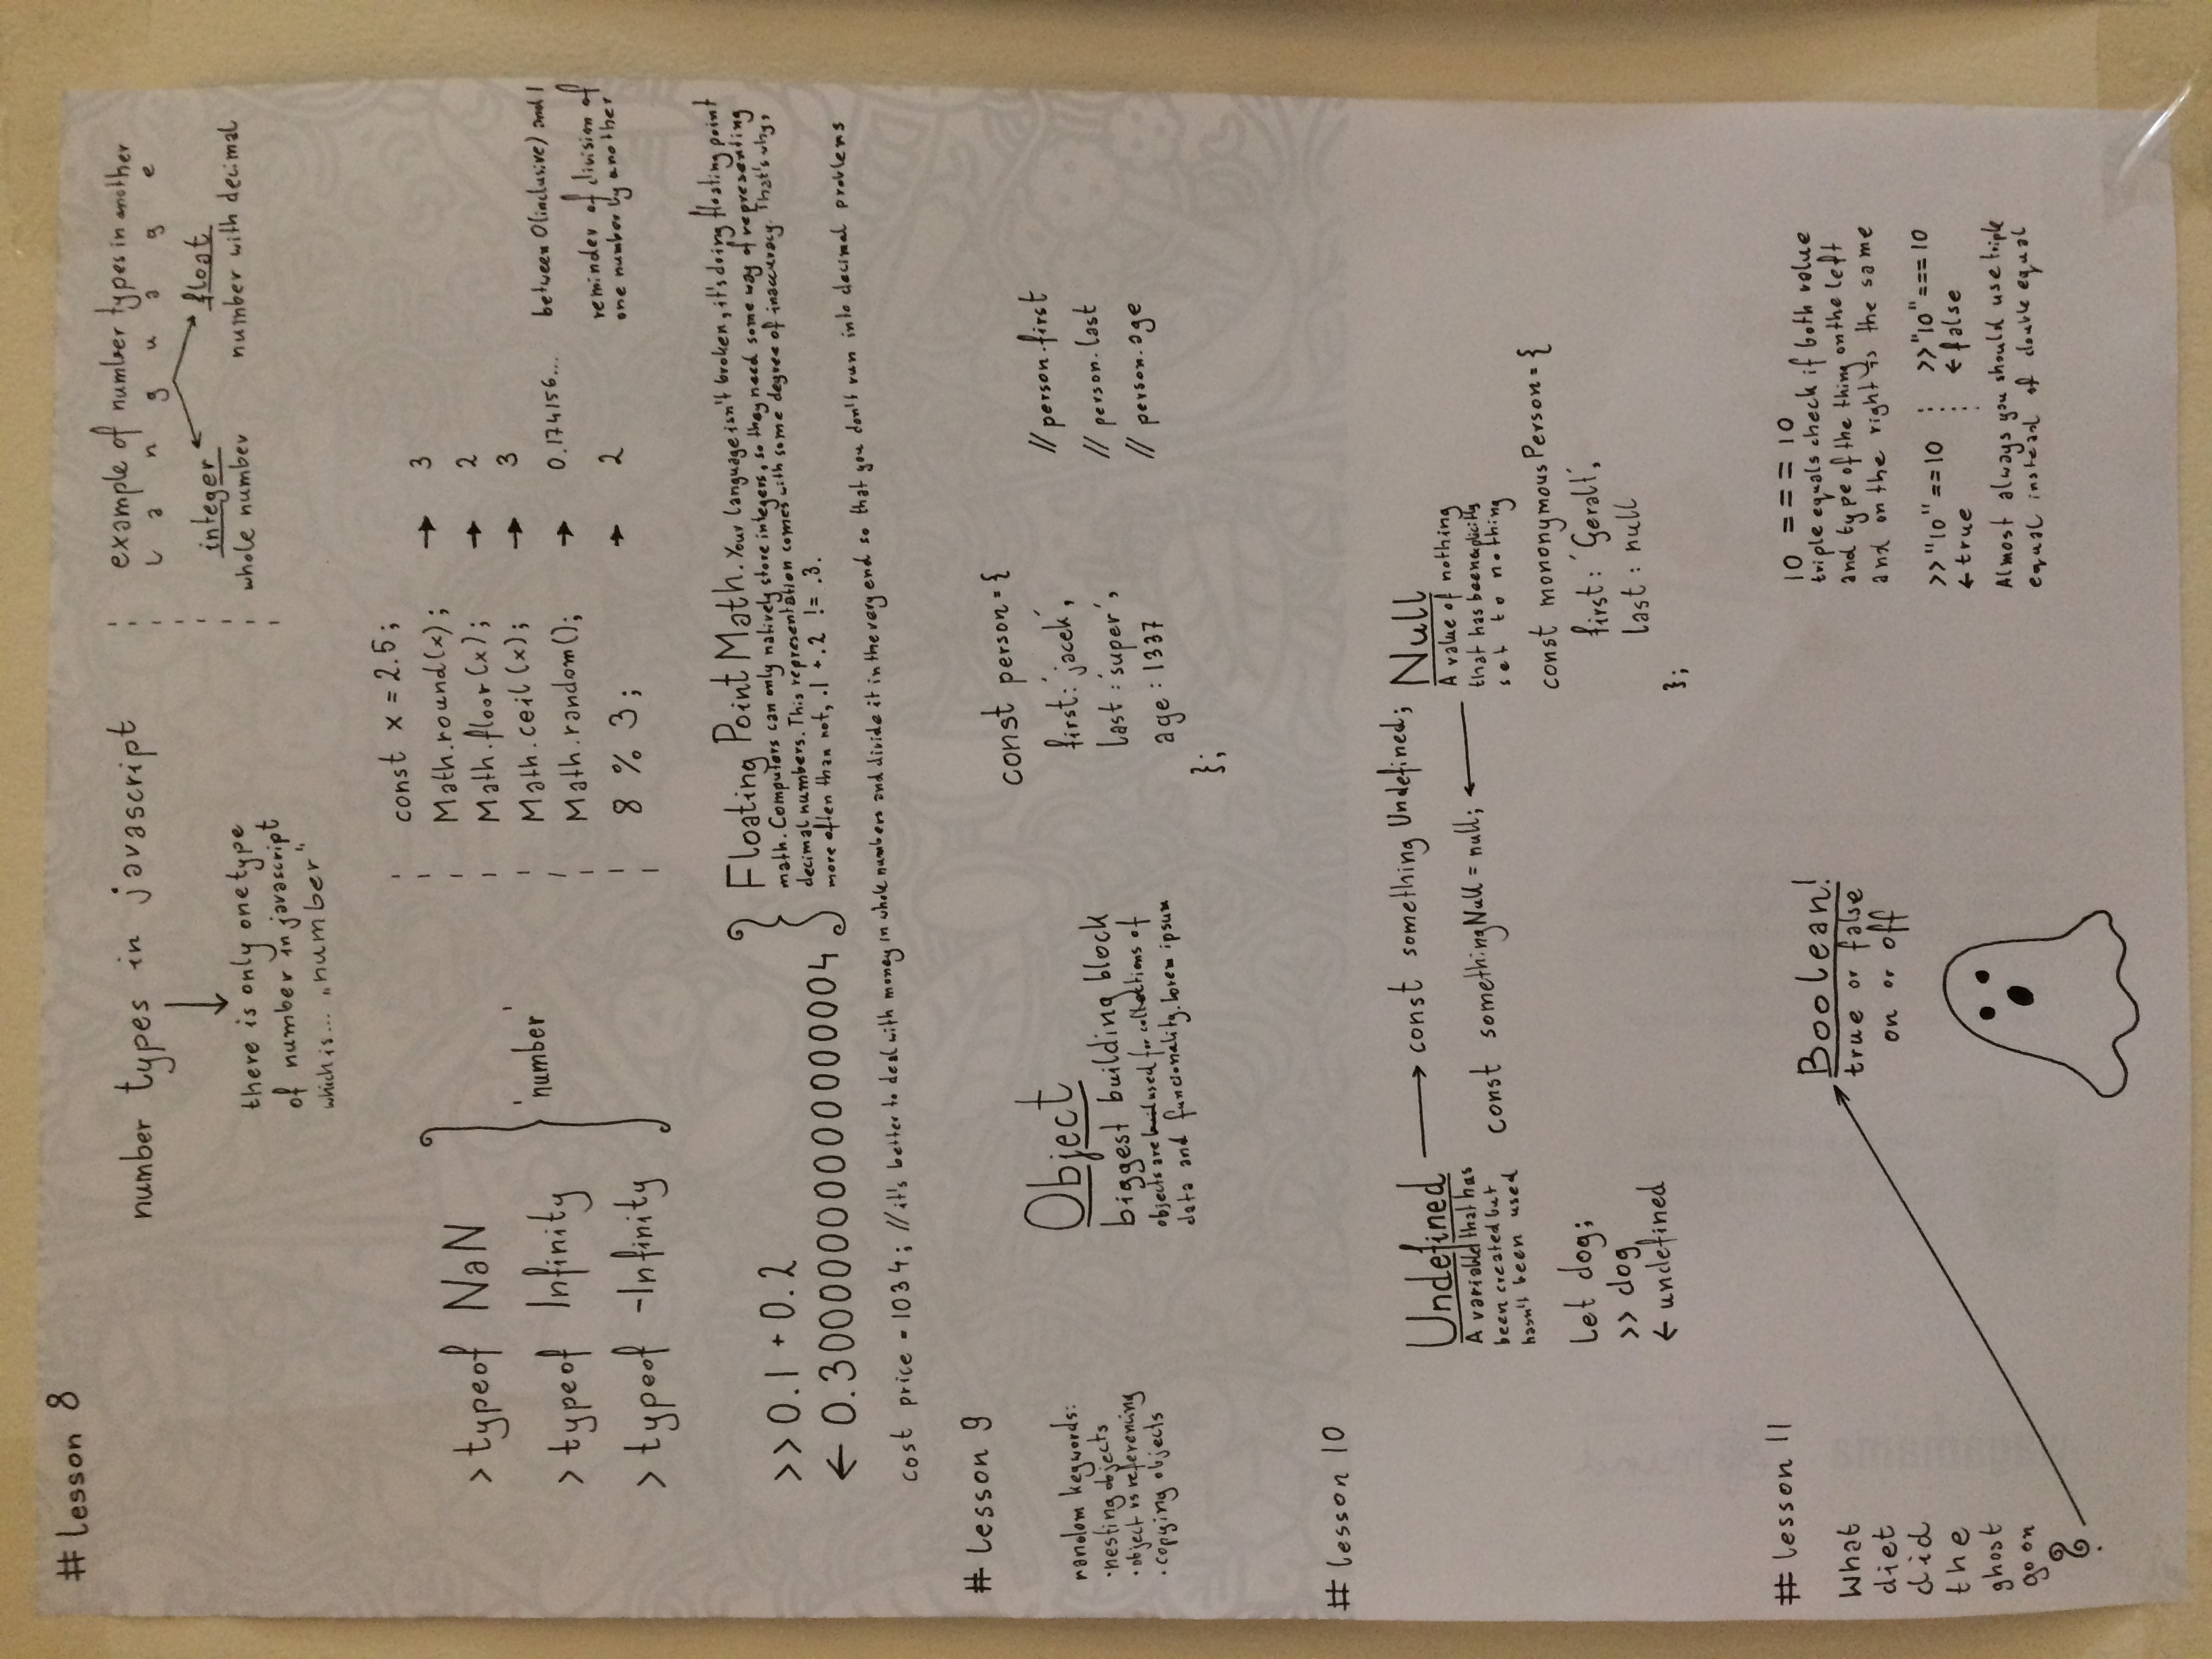 # lesson 8
number types in javascript
there is only one type
of number in javascript
which is... „number"
example of number types in another
l a n g u a g e
integer
whole number
float
number with decimal
> typeof NaN
> typeof Infinity
> typeof -Infinity
'number'
const x = 2.5;
Math.round(x); → 3
Math.floor(x); → 2
Math.ceil(x); → 3
Math.random(); → 0.174156... between 0(inclusive) and 1
8 % 3; → 2
reminder of division of
one number by another
>> 0.1 + 0.2
← 0.30000000000000004
Floating Point Math. Your language isn't broken, it's doing floating point
math. Computers can only natively store integers, so they need some way of representing
decimal numbers. This representation comes with some degree of inaccuracy. That's why,
more often than not, .1 + .2 != .3.
cost price = 1034; //it's better to deal with money in whole numbers and divide it in the very end so that you don't run into decimal problems
# lesson 9
random keywords:
• nesting objects
• object vs referencing
• copying objects
Object
biggest building block
objects are used for collections of
data and funcionality. lorem ipsum
const person = {
first: 'jacek', // person.first
last: 'super', // person.last
age: 1337 // person.age
};
# lesson 10
Undefined → const something Undefined;
A variable that has
been created but
hasn't been used
let dog;
>> dog
← undefined
Null
const somethingNull = null; ←
A value of nothing
that has been explicitly
set to nothing
const mononymousPerson = {
first: 'Geralt',
last: null
};
# lesson 11
What
diet
did
the
ghost
go on
?
Boolean!
true or false
on or off
10 === 10
triple equals check if both value
and type of the thing on the left
and on the right is the same
>> "10" == 10
← true
>> "10" === 10
← false
Almost always you should use triple
equal instead of double equal